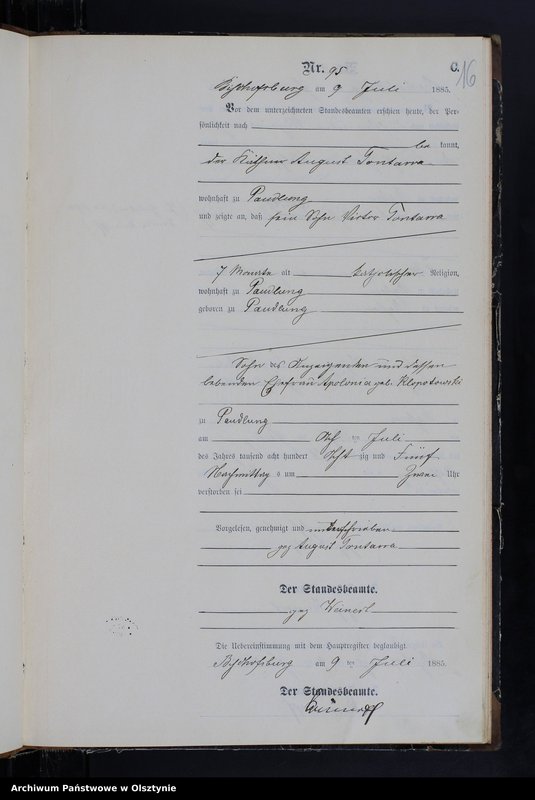 C.
16
Nr. 95
Bischofsburg am 9 Juli 1885.
Vor dem unterzeichneten Standesbeamten erschien heute, der Per-
sönlichkeit nach
be kannt,
der Käthner August Tontarra
wohnhaft zu Paudling
und zeigte an, daß sein Sohn Victor Tontarra
7 Monate alt katholischer Religion,
wohnhaft zu Paudling
geboren zu Paudling
Sohn des Anzeigenden und dessen
lebenden Ehefrau Apolonia geb. Klopotowski
zu Paudling
am Acht ten Juli
des Jahres tausend acht hundert Acht zig und Fünf
Nachmittag s um Zwei Uhr
verstorben sei
Vorgelesen, genehmigt und unterschrieben
gez August Tontarra
Der Standesbeamte.
gez
Die Uebereinstimmung mit dem Hauptregister beglaubigt
Bischofsburg am 9 ten Juli 1885.
Der Standesbeamte.
Archiwum Państwowe w Olsztynie